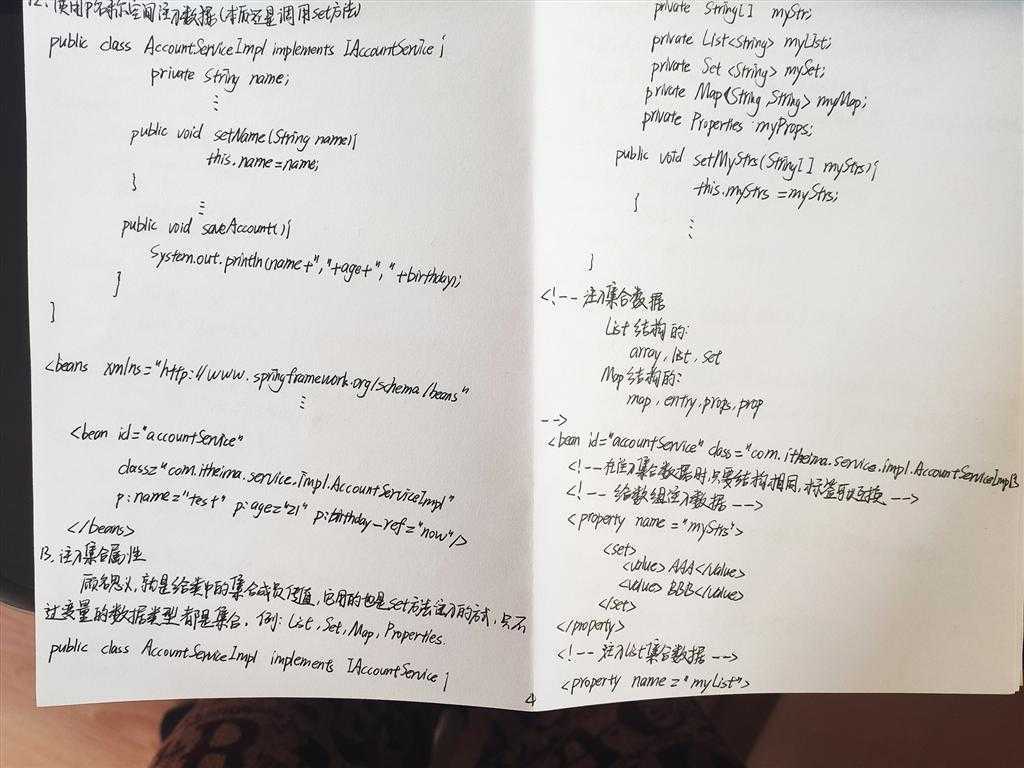 12、使用p名称空间注入数据(本质还是调用set方法)
public class AccountServiceImpl implements IAccountService {
private String name;
⋮
public void setName(String name){
this.name=name;
}
⋮
public void saveAccount(){
System.out.println(name+","+age+","+birthday);
}
}
<beans xmlns="http://www.springframework.org/schema/beans"
⋮
<bean id="accountService"
class="com.itheima.service.impl.AccountServiceImpl"
p:name="test" p:age="21" p:birthday-ref="now"/>
</beans>
13、注入集合属性
顾名思义,就是给类中的集合成员传值,它用的也是set方法注入的方式,只不
过变量的数据类型都是集合。例: List, Set, Map, Properties.
public class AccountServiceImpl implements IAccountService {
private String[] myStr;
private List<String> myList;
private Set<String> mySet;
private Map<String,String> myMap;
private Properties myProps;
public void setMyStrs(String[] myStrs){
this.myStrs = myStrs;
}
⋮
}
<!-- 注入集合数据
List结构的:
array, list, set
Map结构的:
map, entry, props, prop
-->
<bean id="accountService" class="com.itheima.service.impl.AccountServiceImpl">
<!--在注入集合数据时,只要结构相同,标签可以互换 -->
<!-- 给数组注入数据 -->
<property name="myStrs">
<set>
<value>AAA</value>
<value>BBB</value>
</set>
</property>
<!-- 注入list集合数据 -->
<property name="myList">
4